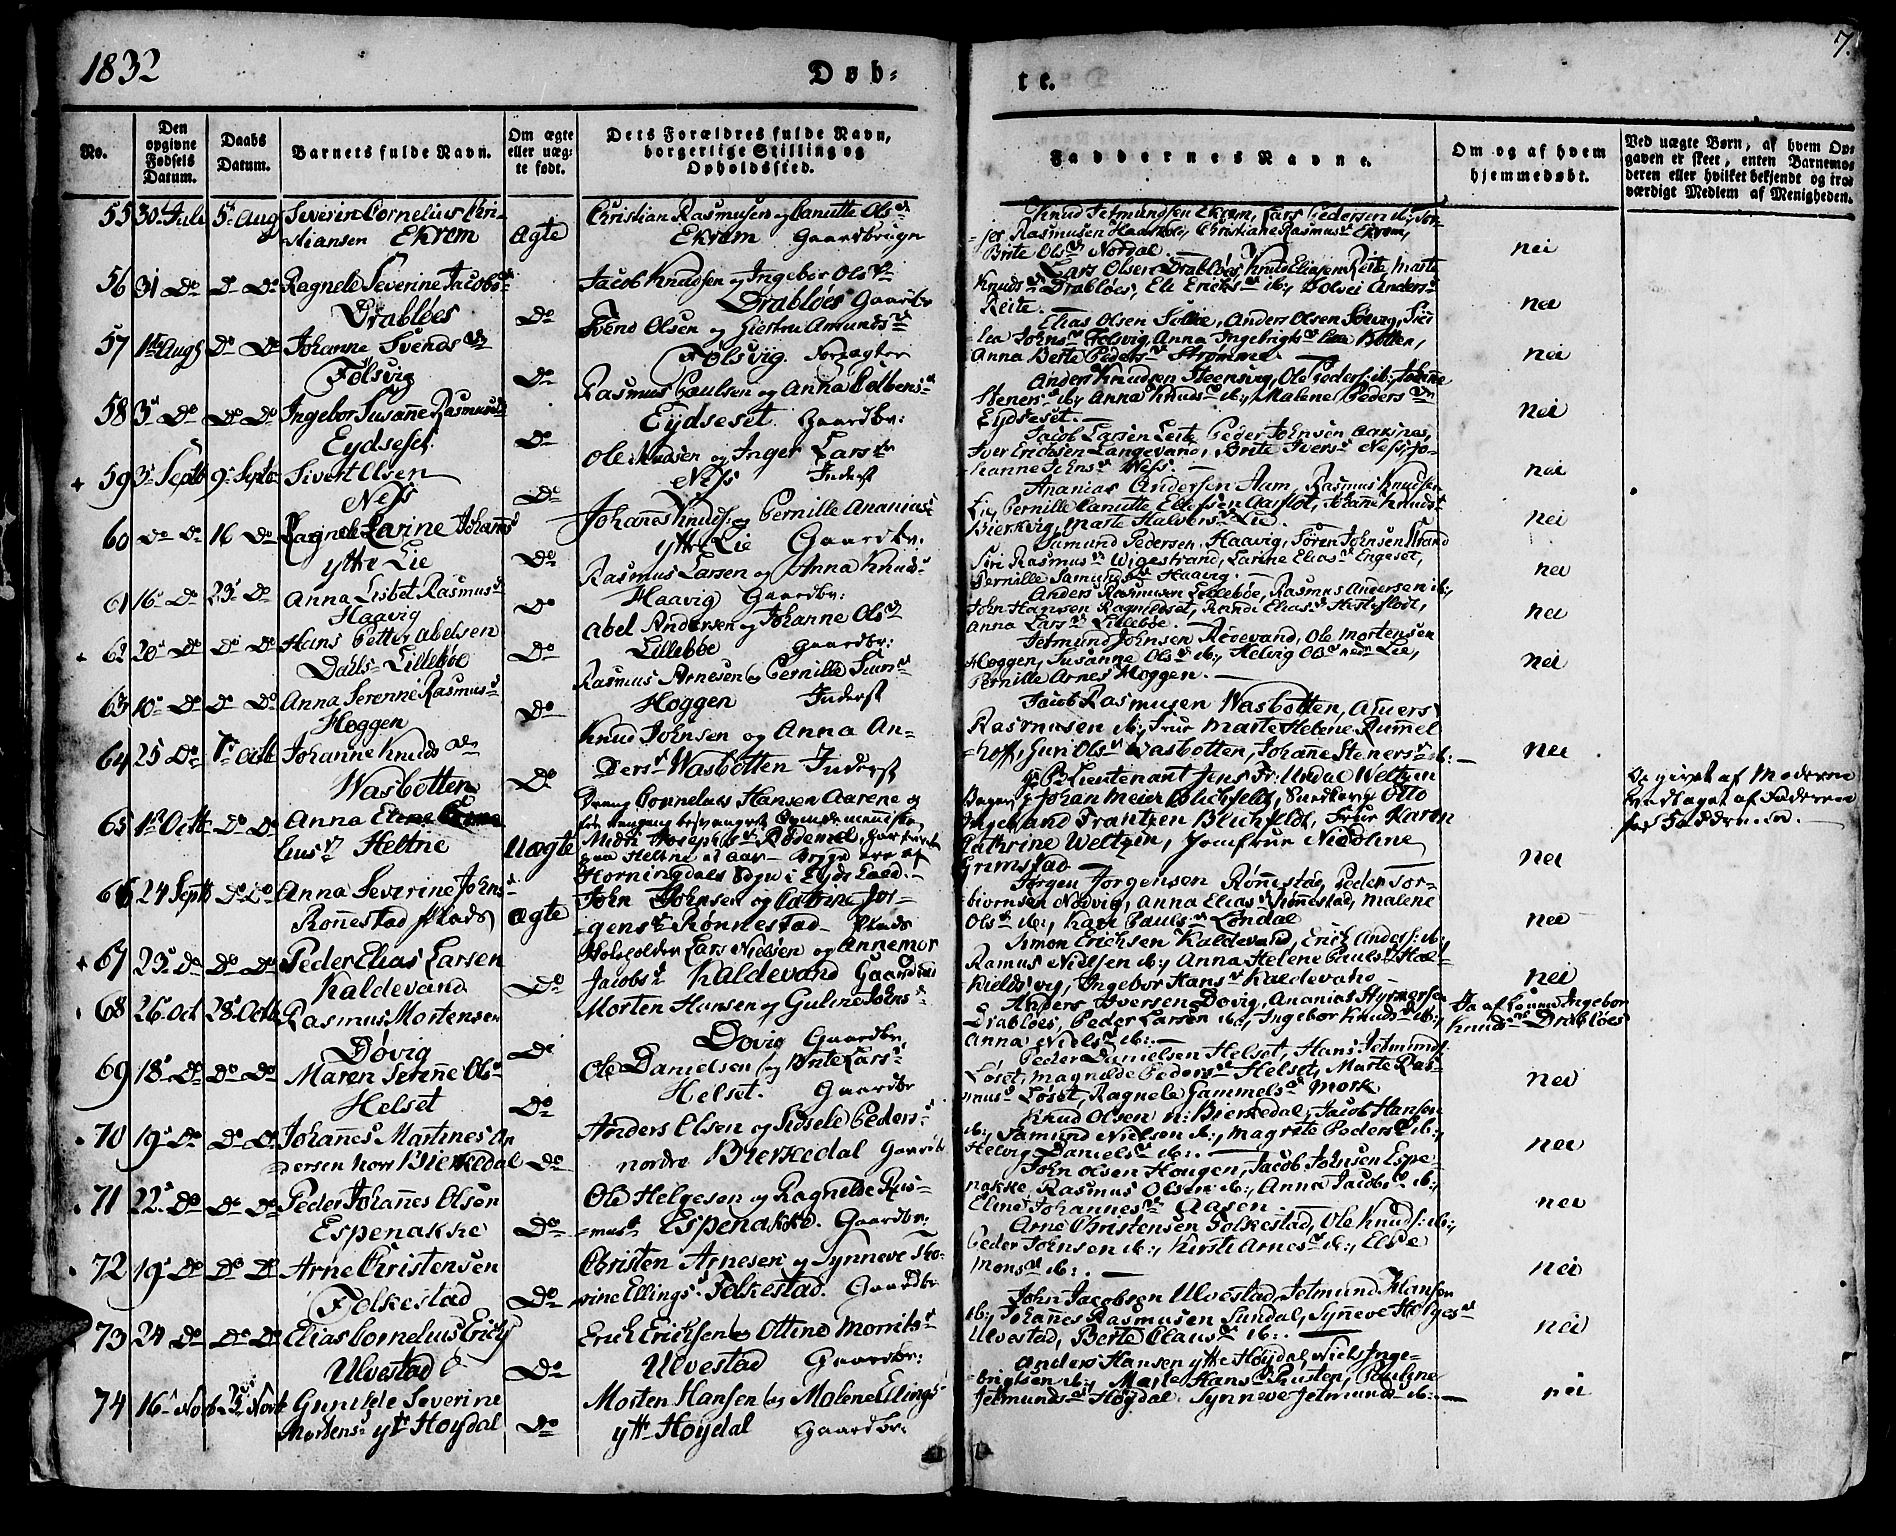 1832
Døb-
te.
7.
No.
Den opgivne Fødsels Datum.
Daabs Datum.
Barnets fulde Navn.
Om ægte eller uæg-te født.
Dets Forældres fulde Navn, borgerlige Stilling og Opholdssted.
Faddernes Navne.
Om og af hvem hjemmedøbt.
Ved uægte Børn, af hvem Op-gaven er skeet, enten Barnemo-deren eller hvilket bekjendt og tro-værdigt Medlem af Menigheden.
55 30 Juli 5 Aug Severin Cornelius Chri-
stiansen Ekrem Ægte
Christian Rasmusen og Canutte Ols
Ekrem Gaardbruger
Knud Jetmundsen Ekrem, Lars Pedersen ib:, Tor-
Rasmusen Christiane Rasmus Ekrem,
Brite Ols Nordal.
nei
56 31 Do Do Do Ragnele Severine Jacobs
Drabløes Do
Jacob Knudsen og Ingebor Ols
Drabløes Gaardbr
Lars Olsen Drabløes, Knud Eliasen Reite, Marte
Knuds Drabløes, Eli Erichs ib:, Solvei Anders
Reite.
nei
57 1 Aug Do Do Johanne Svends
Følsvig Do
Svend Olsen og Giertru Amunds
Følsvig.
Elias Olsen Anders Olsen
Johns Anna Ingebrigts Botten,
Anna Berte Peders Strømme
nei
58 3 Do Do Do Ingebor Susanne Rasmus
Eydseset Do
Rasmus Paulsen og Anna Colbens
Eydseset Gaardbr:
Anders Knudsen Steensvig, Ole Peders: ib: Johanne
Steners ib:, Anna Knuds ib:, Malene Peders
Eydseset.
nei
59 3 Septb 9 Septb Sivert Olsen
Ness Do
Ole Knudsen og Inger Lars
Ness Inderst
Jacob Larsen Leite Peder Johnsen Aarsnes,
Iver Erichsen Langevand, Brite Ivers Ness, Jo-
hanne Johns Ness.
nei
60 Do Do 16 Do Ragnele Karine Johannes
ytte Lie Do
Johannes Knuds: og Pernille Ananias
ytte Lie Gaardbr:
Ananias Andersen Aam, Rasmus Knudsen
Lie, Pernille Canutte Ellefsen Aarflot, Johanne Knuds
Bierkvig, Marte Halvors Lie.
nei
61 16 Do 23 Do Anna Lisbet Rasmus
Haavig Do
Rasmus Larsen og Anna Knuds
Haavig Gaardbr:
Samund Pedersen Haavig, Søren Johnsen Strand
Siri Rasmus Wigestrand, Karine Elias Engeset,
Pernille Samunds Haavig.
nei
62 20 Do Do Do Hans Petter Abelsen
Dahls-Lillebøe Do
Abel Andersen og Johanne Ols
Lillebøe Gaardbr:
Anders Rasmusen Lillebøe, Rasmus Andersen ib:,
John Hansen Ragnildset, Randi Elias Hesteflodt,
Anna Lars Lillebøe.
nei
63 10 Do Do Do Anna Serenne Rasmus
Hoggen Do
Rasmus Arnesen og Pernille
Hoggen Inderst
Jetmund Johnsen Rosevand, Ole Mortensen
Hoggen, Susanne Ols ib:, Helvig Ols Lie,
Pernille Arnes Hoggen.
nei
64 25 Do 7 Octb Johanne Knuds
Wasbotten Do
Knud Johnsen og Anna An-
ders Wasbotten Inderst
Jacob Rasmusen Wasbotten,
Rasmusen ib:, Frue Marte Helene Rummel
hoff, Guri Ols Wasbotten, Johanne Steners ib:
nei
65 1 Octb Do Do Anna
lius Heltne Uægte
Dreng Cornelius Hansen Aarene og
Josephs Rødemel,
Horningdals Sogn i Eyds
Lieutenant Jens Fr: Undal Weltzin
Johan Meier Blichfeldt, Otto
Ingebrand Frantzen Blichfeldt, Frue Karen
Cathrine Weltzin, Jomfrue Nicoline
Grimstad
nei
Opgivet af Moderen
vedtaget af Faderen
66 24 Septb Do Do Anna Severine Johns
Rønnestad plads Ægte
John Johnsen og Catrine Jør-
gens Rønnestad Plads
Jørgen Jorgensen Rønnestad, Peder Tor-
biornsen Nodvig, Anna Elias Rønnestad, Malene
Ols ib:, Kari Pauls Londal
nei
67 23 Do Do Do Peder Elias Larsen
Kaldevand Do
Lars Nielsen og Annemor
Jacobs Kaldevand Gaardbr
Simon Erichsen Kaldevand, Erich Anders: ib:,
Ramus Nielsen ib:, Anna Helene Pauls Hol-
Ingebor Hans Kaldevand
nei
68 26 Oct 28 Octb Rasmus Mortensen
Døvig Do
Morten Hansen og Guline Johns
Dovig Gaardbr
Anders Iversen Dovig, Ananias
Drabløes, Peder Larsen ib:, Ingebor Knuds ib:,
Anna Niels ib:
Ja af Ingebor
Knuds Drabløes
69 18 Do Do Do Maren Serenne Ols
Helset Do
Ole Danielsen og Brite Lars
Helset. Gaardbr
Peder Danielsen Helset, Hans Jetmunds
Løset, Magnilde Peders Helset, Marte Ras-
mus Løset, Ragnele Gammels Mork
nei
70 19 Do Do Do Johannes Martines An
dersen norr Bierkedal Do
Anders Olsen og Sidsele Peders
nordre Bierkedal Gaardb
Knud Olsen n: Bierkedal, Jacob Hansen
ib:, Samund Nielsen ib:, Magrete Peders ib:,
Helvig Daniels ib:.
nei
71 22 Do Do Do Peder Johannes Olsen
Espenakke Do
Ole Helgesen og Ragnilde Ras-
mus Espenakke. Gaardbr:
John Olsen Hougen, Jacob Johnsen Espe-
nakke, Rasmus Olsen ib:, Anna Jacobs ib:,
Eline Johannes Aasen
nei
72 19 Do Do Do Arne Christensen
Folkestad Do
Christen Arnesen og Synneve Tho-
rine Ellings Folkestad. Gaardbr
Arne Christensen Folkestad, Ole Knuds: ib:,
Peder Johnsen ib:, Kirsti Arnes ib:, Else
Mons ib:.
nei
73 24 Do Do Do Elias Cornelius Erichs
Ulvestad Do
Erich Erichsen og Ottine Morrits
Ulvestad Gaardbr:
John Jacobsen Ulvestad, Jetmund Hansen
ib:, Johannes Rasmusen Sundal, Synneve Helges
Ulvestad, Berte Claus ib:.
nei
74 16 Novb Novb Gunilde Severine
Mortens ytt Hoydal Do
Morten Hansen og Malene Ellings
ytt Hoydal Gaardbr:
Anders Hansen ytte Hoydal, Niels Inge-
brigtsen ib:, Marte Hans Rusten, Pauline
Jetmunds Høydal, Synneve Jetmunds ib:
nei